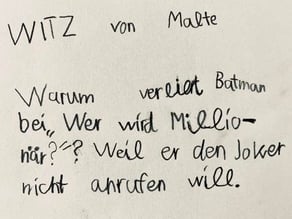 WITZ von Malte
Warum verliert Batman
bei „Wer wird Millio-
när?"? Weil er den Joker
nicht anrufen will.